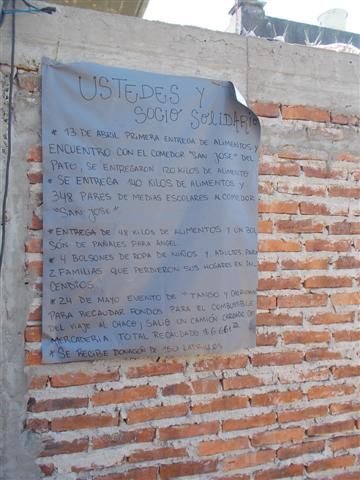 USTEDES Y
SOCIO SOLIDARIO
* 13 DE ABRIL PRIMERA ENTREGA DE ALIMENTOS Y
ENCUENTRO CON EL COMEDOR "SAN JOSE" DEL
PATO, SE ENTREGARON 120 KILOS DE ALIMENTO
* SE ENTREGA 140 KILOS DE ALIMENTOS Y
348 PARES DE MEDIAS ESCOLARES AL COMEDOR
"SAN JOSE"
* ENTREGA DE 48 KILOS DE ALIMENTOS Y UN BOL
SÓN DE PAÑALES PARA ANGEL
* 4 BOLSONES DE ROPA DE NIÑOS Y ADULTOS PARA
2 FAMILIAS QUE PERDIERON SUS HOGARES EN IN
CENDIOS.
* 24 DE MAYO EVENTO DE "TANGO Y
PARA RECAUDAR FONDOS PARA EL COMBUSTIBLE
DEL VIAJE AL CHACO, SALIO UN CAMIÓN CARGADO DE
MERCADERIA. TOTAL RECAUDADO
* SE RECIBE DONACIÓN DE 150